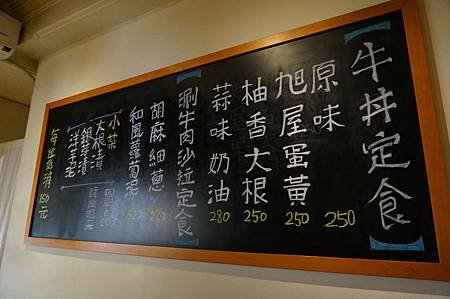 牛丼定食
原味 250
旭屋蛋黃 250
柚香大根 250
蒜味奶油 280
涮牛肉沙拉定食
胡麻細蔥
和風蘿蔔泥
小菜
大根漬
銀芽漬
洋芋泥
每位低消150元